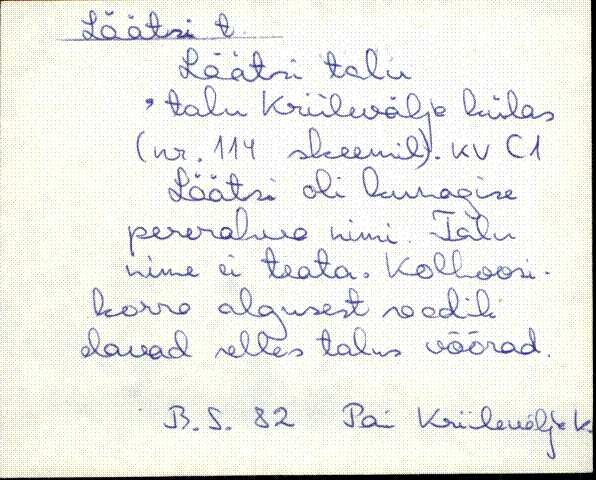 Läätsi t.
Läätsi talu
talu Kriilevälja külas
(nr. 114 skeemil). KV C1
Läätsi oli kunagise
pererahva nimi. Talu
nime ei teata. Kolhoosi-
korra algusest saadik
elavad selles talus võõrad.
B.S. 82 Pai Kriilevälja k.